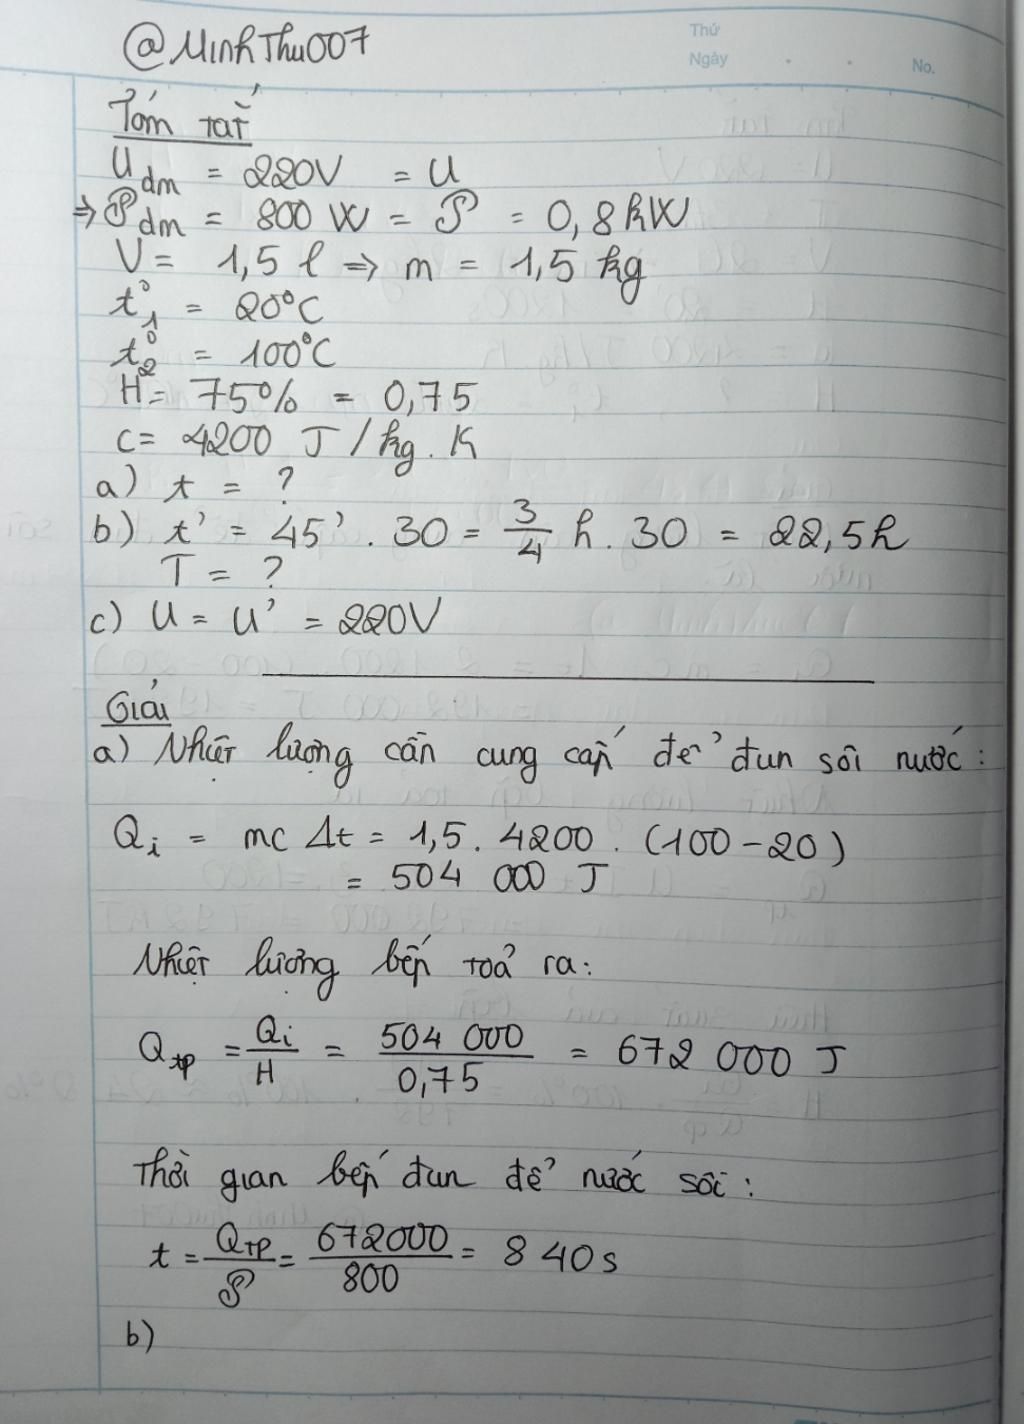 @MinhThu007
Thứ
Ngày
No.
Tóm tắt
Udm = 220V = U
⇒ 𝒫dm = 800 W = 𝒫 = 0,8 kW
V = 1,5 l ⇒ m = 1,5 kg
t°1 = 20°C
t°2 = 100°C
H = 75% = 0,75
c = 4200 J / kg . K
a) t = ?
b) t' = 45' . 30 = 3/4 h . 30 = 22,5h
T = ?
c) U = U' = 220V
Giải
a) Nhiệt lượng cần cung cấp để đun sôi nước :
Qi = mc Δt = 1,5 . 4200 . (100 - 20)
= 504 000 J
Nhiệt lượng bếp toả ra:
Qtp = Qi/H = 504 000/0,75 = 672 000 J
Thời gian bếp đun để nước sôi :
t = QTP/𝒫 = 672000/800 = 840s
b)